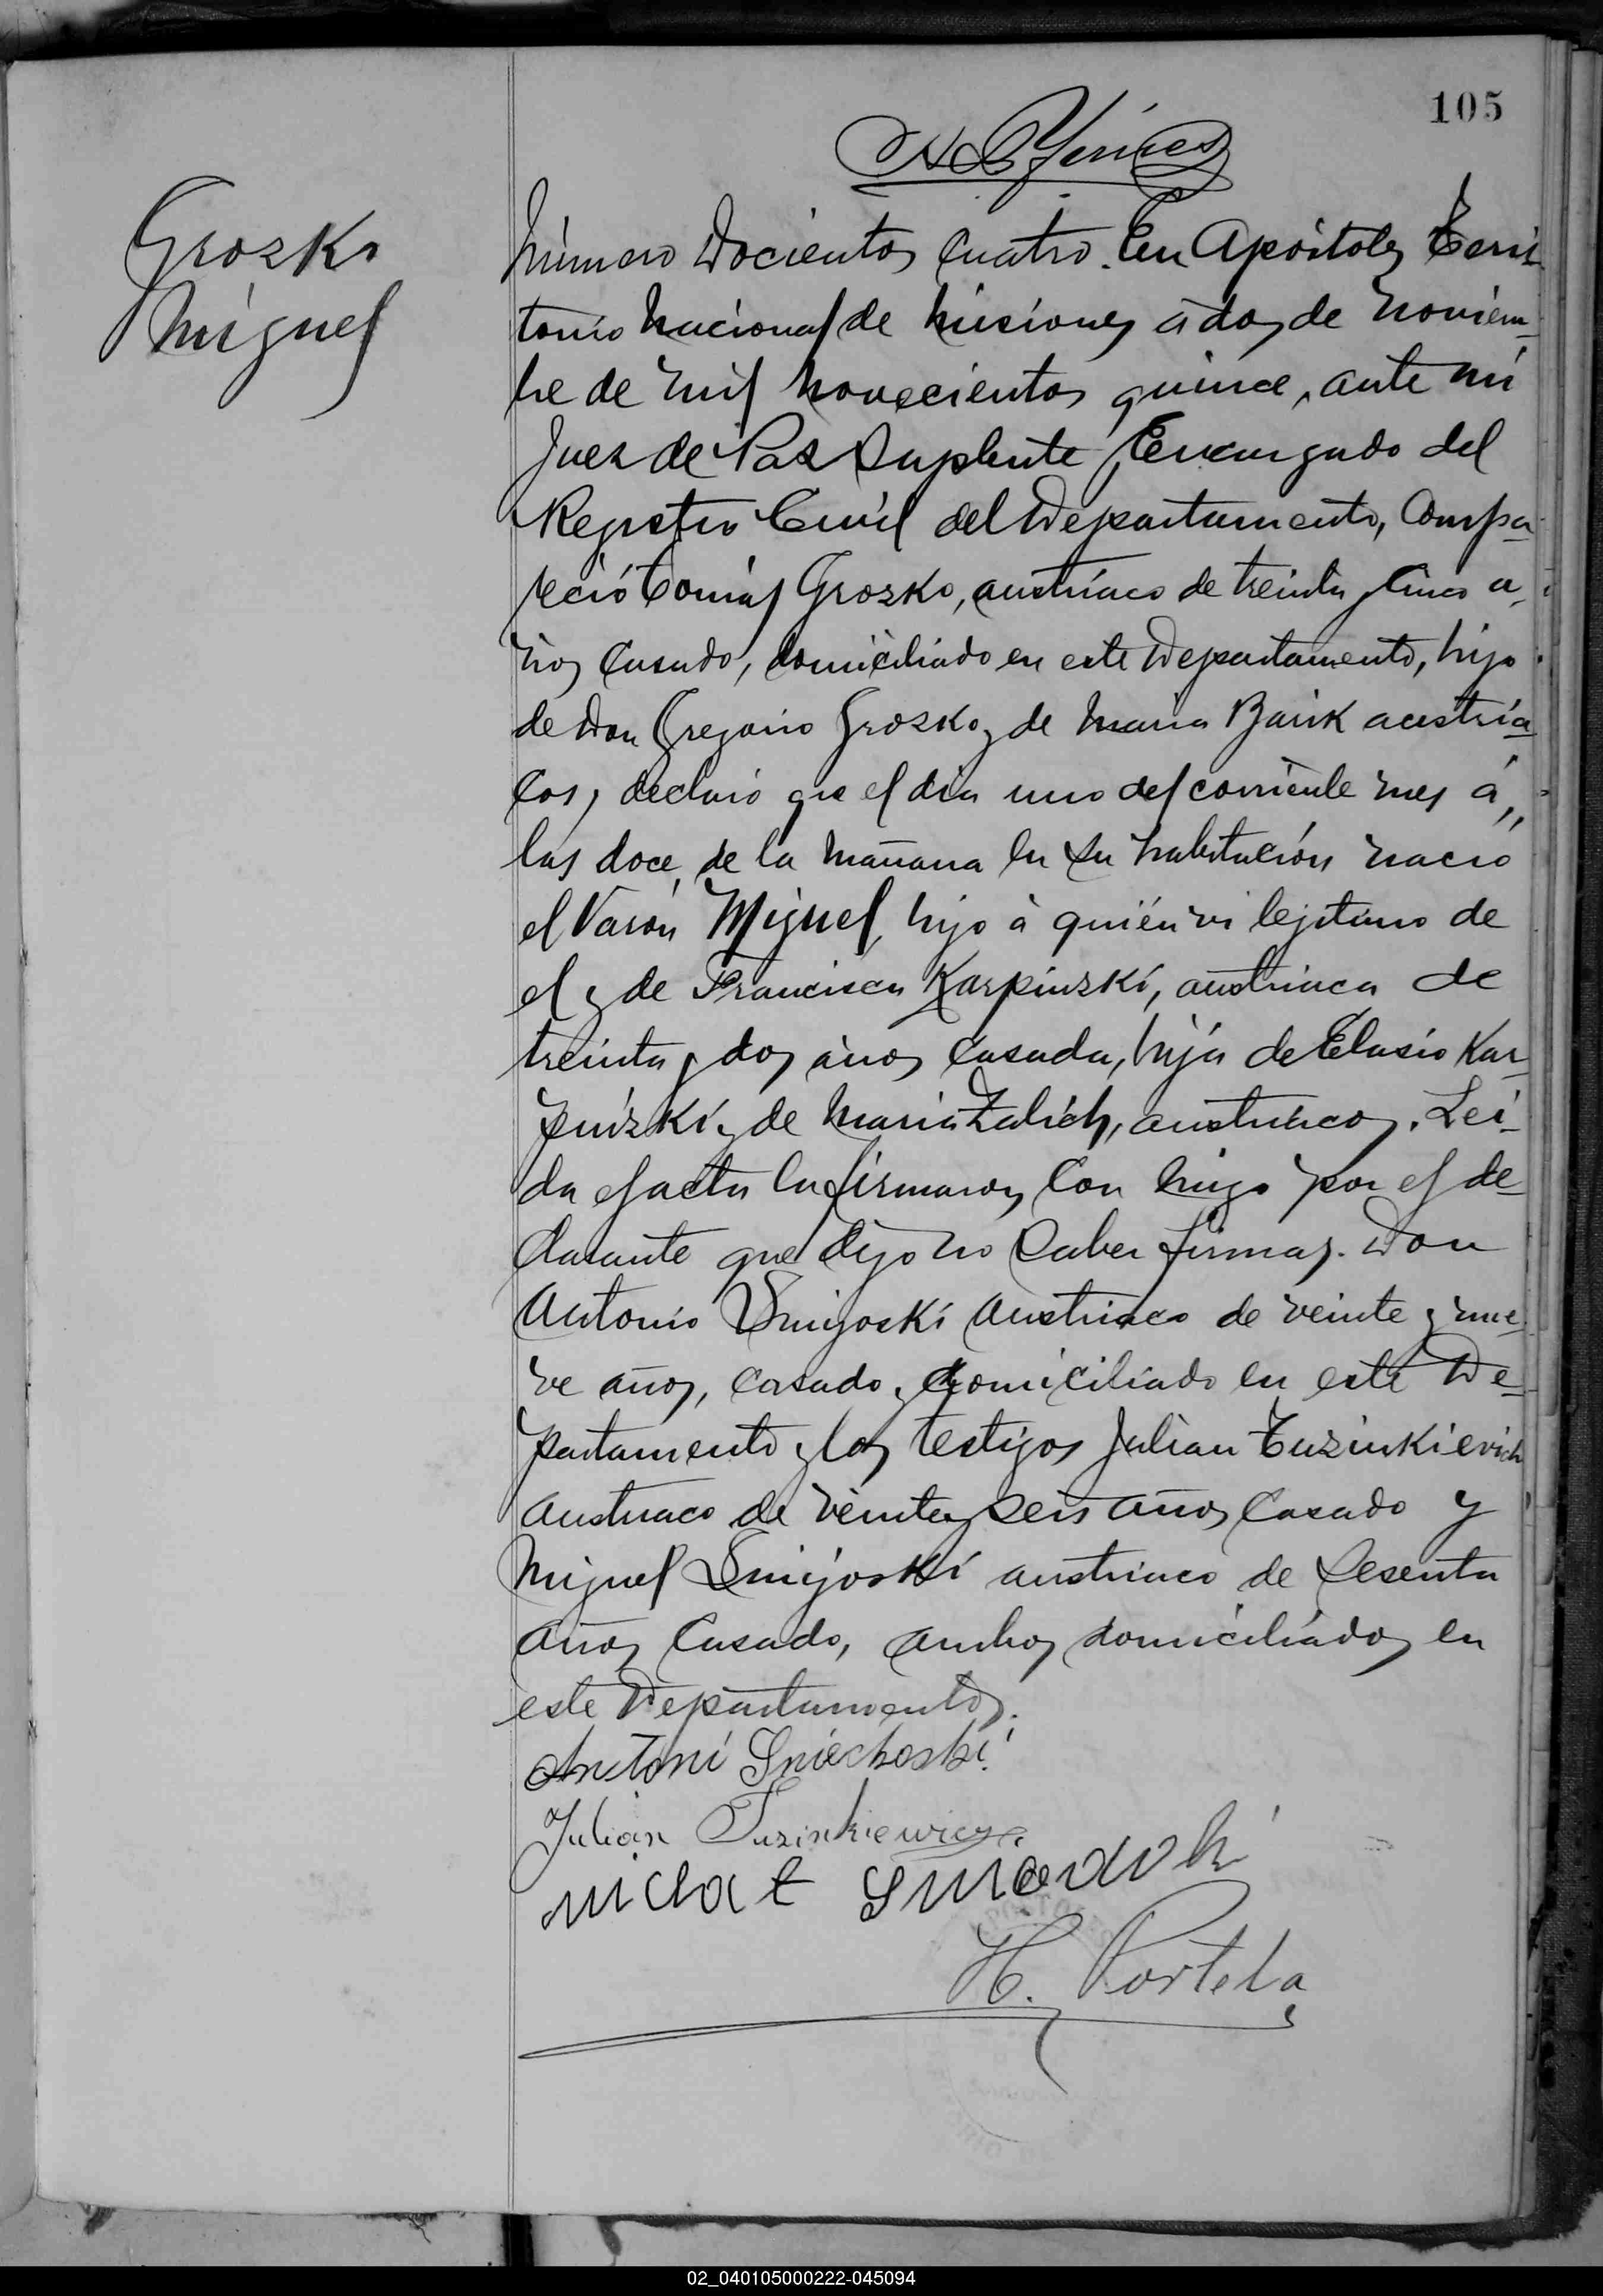 105
Grozko
Miguel
Número Docientos cuatro. En Apóstoles Terri-
torio Nacional de Misiones á dos de Noviem-
bre de mil novecientos quince, ante mi
Juez de Paz Suplente Encargado del
Registro Civil del Departamento, Compa-
reció Tomás Grozko, austríaco de treinta y cinco a-
ños casado, domiciliado en este Departamento, hijo
de Don Gregorio Grozko y de Maria Barik austria-
cos, declaró que el dia uno del corriente mes á,,
las doce de la mañana en su habitación nació
el Varón Miguel, hijo à quién vi lejitimo de
el y de Francisca Karpinzki, austriaca de
treinta y dos años casada, hija de Elasio Kar-
pinzki y de Maria Zalich, austriacos. Lei-
da el acta la firmaron con migo por el de-
clarante que dijo no saber firmar. Don
Antonio Snigoski Austriaco de veinte y nue-
ve años, casado, y domiciliado en este De-
partamento y los testigos Julian Tuzinkievich
Austriaco de veinte y seis años casado y
Miguel Snigoski austriaco de sesenta
años casado, ambos domiciliados en
este Departamento.
Antoni Sniechoski
Julian Tuzinkiewicz
H. Portela
02_040105000222-045094